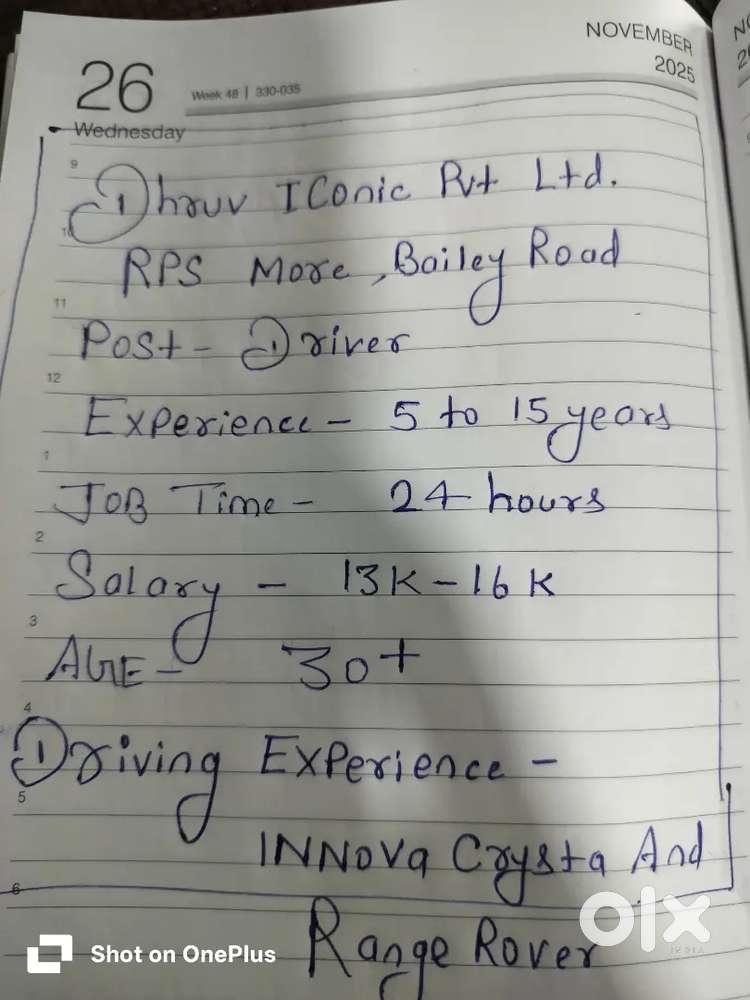 NOVEMBER
2025
26
Week 48 | 330-035
Wednesday
9
Dhruv IConic Pvt Ltd.
10
RPS More, Bailey Road
11
Post- Driver
12
Experience - 5 to 15 years
1
JOB Time - 24 hours
2
Salary - 13K-16K
3
AGE- 30+
4
Driving Experience -
5
INNOVa Crysta And
6
Range Rover
Shot on OnePlus
olx
INDIA